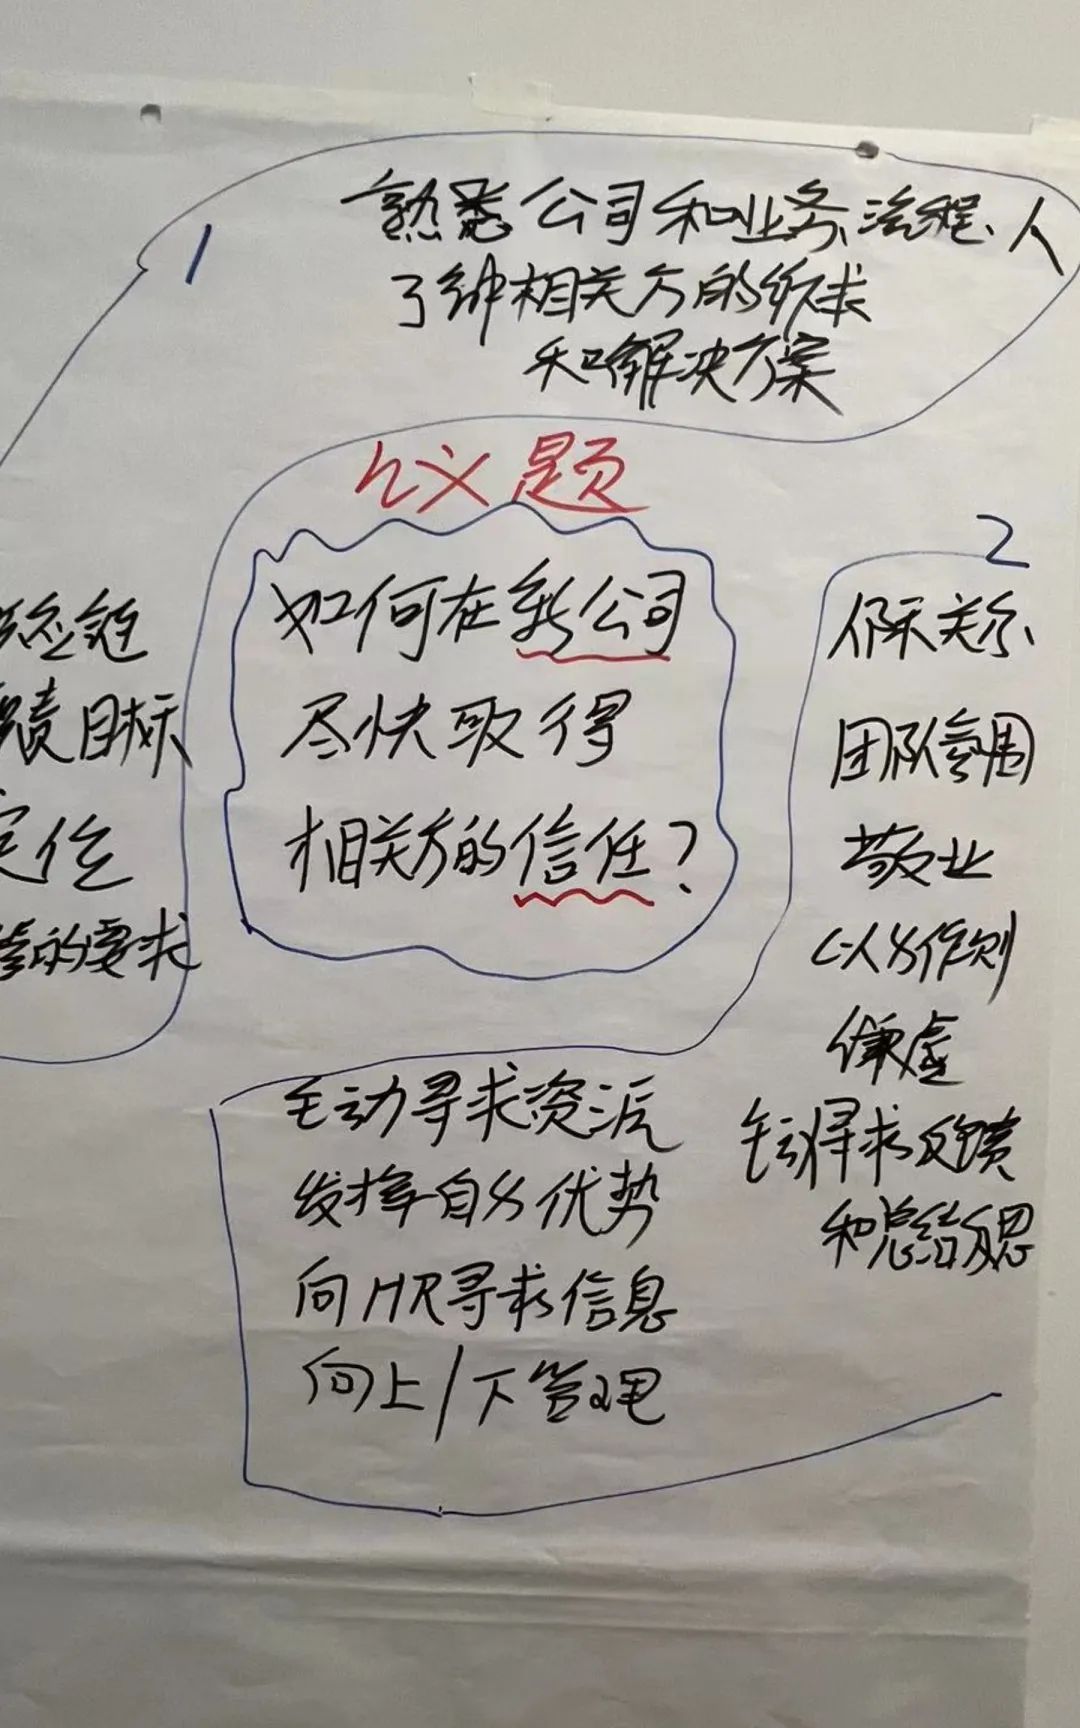 1
熟悉公司和业务、流程、人
了解相关方的需求
和解决方案
议题
如何在新公司
尽快取得
相关方的信任？
目标
定位
的要求
2
关系
团队氛围
敬业
以身作则
谦虚
主动寻求反馈
和总结反思
主动寻求资源
发挥自身优势
向HR寻求信息
向上/下管理